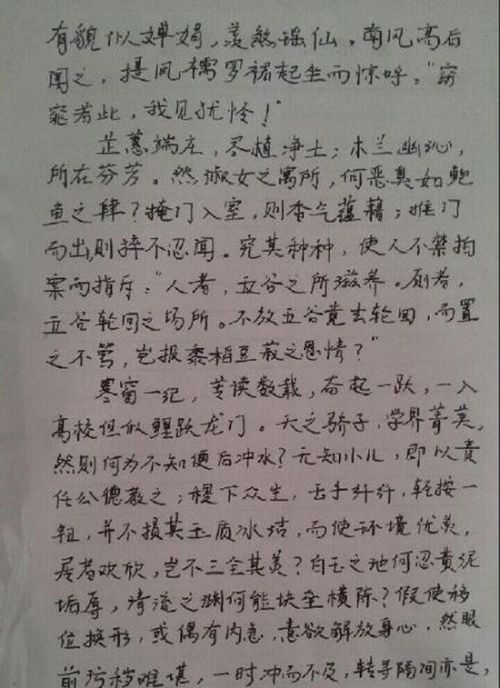 有貌似婵娟，羡煞瑶仙。南风高后
闻之，提凤襦罗裙起坐而惊呼："窈
窕若此，我见犹怜！"
芷蕙端庄，尽植净土；木兰幽沁，
所在芬芳。然淑女之寓所，何恶臭如鲍
鱼之肆？掩门入室，则香气蕴藉；推门
而出，则捽不忍闻。究其种种，使人不禁拍
案而指斥："人者，五谷之所滋养。厕者，
五谷轮回之场所。不放五谷竟去轮回，而置
之不管，岂报黍稻豆菽之恩情？"
寒窗一纪，苦读数载，奋起一跃，一入
高校恒似鲤跃龙门。天之骄子，学界菁英，
然则何为不知便后冲水？无知小儿，即以责
任公德教之；稷下众生，玉手纤纤，轻按一
钮，并不损其玉质冰洁，而使环境优美，
居者欢欣，岂不三全其美？白玉之地何忍黄泥
垢辱，清流之渊何能块垒横陈？假使移
位换形，或偶有内急，意欲解放身心，然眼
前污秽难堪，一时冲而不及，转寻隔间亦是，